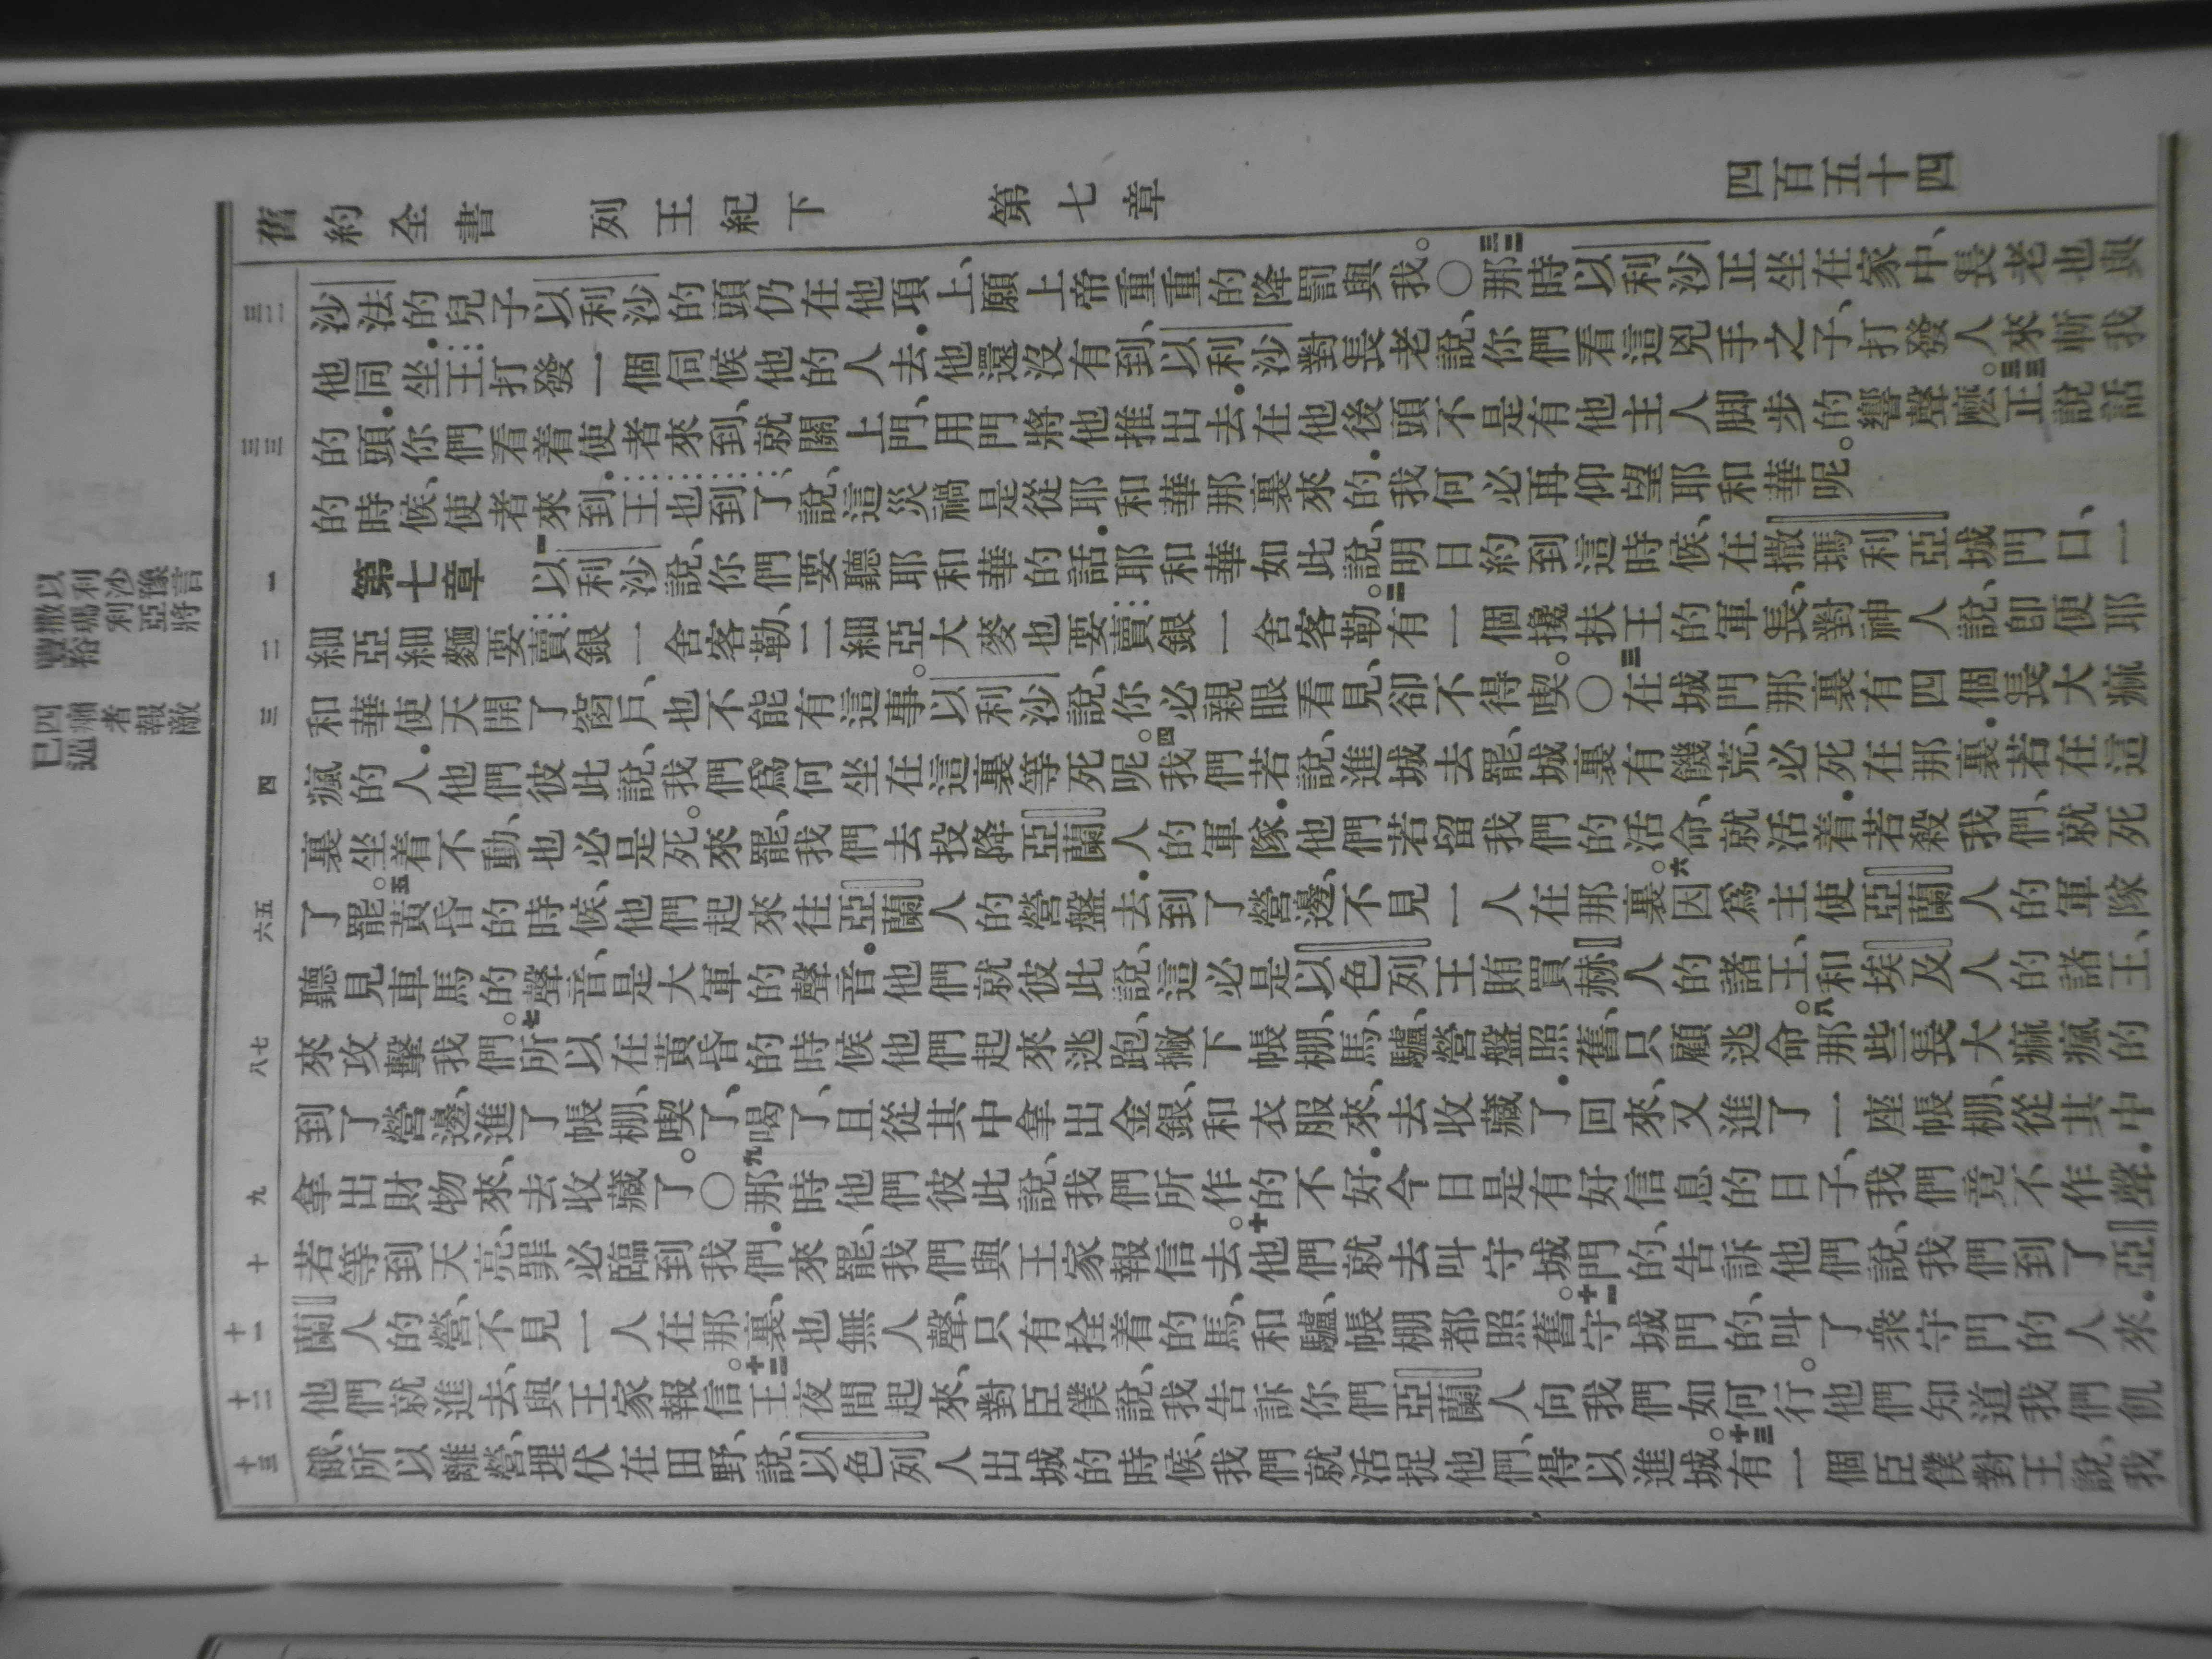 舊約全書 列王紀下 第七章 四百五十四
三二
沙法的兒子以利沙的頭仍在他項上、願上帝重重的降罰與我。〇三二那時以利沙正坐在家中、長老也與
他同坐.王打發一個伺候他的人去.他還沒有到、以利沙對長老說、你們看這兇手之子、打發人來斬我
三三
的頭.你們看着使者來到、就關上門、用門將他推出去.在他後頭不是有他主人脚步的響聲麽。三三正說話
的時候、使者來到.王也到了、說、這災禍是從耶和華那裏來的.我何必再仰望耶和華呢。
一
第七章 一以利沙說、你們要聽耶和華的話.耶和華如此說、明日約到這時候、在撒瑪利亞城門口、一
二
細亞細麵要賣銀一舍客勒、二細亞大麥也要賣銀一舍客勒。二有一個攙扶王的軍長、對神人說、卽便耶
三
和華使天開了窗戶、也不能有這事。以利沙說、你必親眼看見、卻不得喫。〇三在城門那裏有四個長大痲
四
瘋的人.他們彼此說、我們爲何坐在這裏等死呢。四我們若說、進城去罷、城裏有饑荒、必死在那裏.若在這
裏坐着不動、也必是死。來罷、我們去投降亞蘭人的軍隊.他們若留我們的活命、就活着.若殺我們、就死
六五
了罷。五黃昏的時候、他們起來往亞蘭人的營盤去.到了營邊、不見一人在那裏。六因爲主使亞蘭人的軍隊
聽見車馬的聲音、是大軍的聲音.他們就彼此說、這必是以色列王賄買赫人的諸王、和埃及人的諸王、
八七
來攻擊我們。七所以在黃昏的時候他們起來逃跑、撇下帳棚、馬、驢、營盤照舊、只顧逃命。八那些長大痲瘋的
到了營邊、進了帳棚、喫了、喝了、且從其中拿出金銀、和衣服來、去收藏了.回來、又進了一座帳棚、從其中
九
拿出財物來、去收藏了。〇九那時他們彼此說、我們所作的不好.今日是有好信息的日子、我們竟不作聲.
十
若等到天亮、罪必臨到我們.來罷、我們與王家報信去。十他們就去叫守城門的、告訴他們說、我們到了亞
十一
蘭人的營、不見一人在那裏、也無人聲、只有拴着的馬、和驢、帳棚都照舊。十一守城門的、叫了衆守門的人來.
十二
他們就進去、與王家報信。十二王夜間起來、對臣僕說、我告訴你們亞蘭人向我們如何行。他們知道我們飢
十三
餓、所以離營、埋伏在田野、說、以色列人出城的時候、我們就活捉他們、得以進城。十三有一個臣僕對王說、我
以利沙豫言
撒瑪利亞將
豐裕
四癩者報敵
已遁